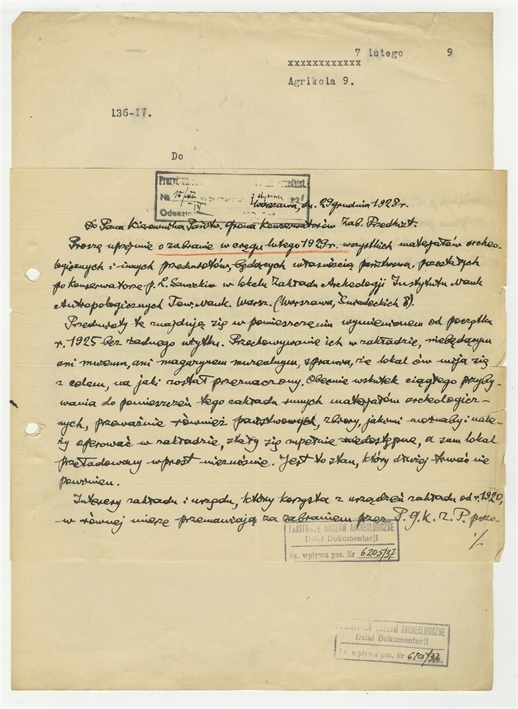 7 lutego 9
xxxxxxxxxxxx
Agrikola 9.
136-IV.
Do
Warszawa, dn. 29 grudnia 1928 r.
Do Pana Kierownika Państw. Grona Konserwatorów Zab. Przedhist.
Proszę uprzejmie o zabranie w ciągu lutego 1929 r. wszystkich materjałów archeo-
logicznych i innych przedmiotów, będących własnością państwową, pozostałych
po konserwatorze p. L. Sawickim w lokalu Zakładu Archeologji Instytutu Nauk
Antropologicznych Tow. Nauk. Warsz. (Warszawa, Śniadeckich 8).
Przedmioty te znajdują się w pomieszczeniu wymienionem od początku
r. 1925 bez żadnego użytku. Przechowywanie ich w zakładzie, niebędącym
ani muzeum, ani magazynem muzealnym, sprawia, że lokal ów mija się
z celem, na jaki został przeznaczony. Obecnie wskutek ciągłego przyby-
wania do pomieszczeń tego zakładu innych materjałów archeologicz-
nych, przeważnie również państwowych, zbiory, jakiemi możnaby i nale-
ży operować w zakładzie, stały się zupełnie niedostępne, a sam lokal
przeładowany wprost nieznośnie. Jest to stan, który dłużej trwać nie
powinien.
Interesy zakładu i urzędu, który korzysta z urządzeń zakładu od r. 1920,
w równej mierze przemawiają za zabraniem przez P. G. K. Z. P. pozo-
./.
PAŃSTWOWE MUZEUM ARCHEOLOGICZNE
Dział Dokumentacji
ks. wpływu poz. Nr 6205/37
PAŃSTWOWE MUZEUM ARCHEOLOGICZNE
Dział Dokumentacji
ks. wpływu poz. Nr 6205/37